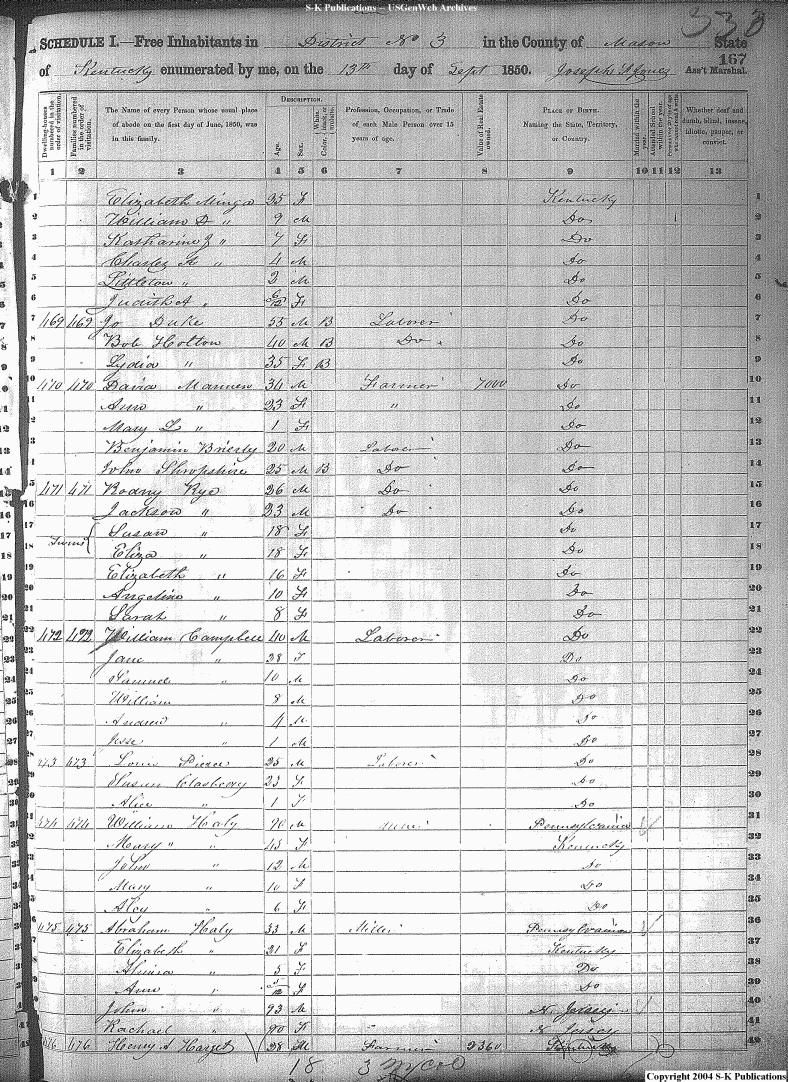 S-K Publications -- USGenWeb Archives
SCHEDULE I.—Free Inhabitants in District No 3 in the County of Mason State
of Kentucky enumerated by me, on the 13th day of Sept 1850. Ass't Marshal.
167
DESCRIPTION.
Dwelling-houses numbered in the order of visitation.
Families numbered in the order of visitation.
The Name of every Person whose usual place of abode on the first day of June, 1850, was in this family.
Age.
Sex.
Profession, Occupation, or Trade of each Male Person over 15 years of age.
Value of Real Estate owned.
PLACE OF BIRTH. Naming the State, Territory, or Country.
Married within the year.
Attended School within the year.
Whether deaf and dumb, blind, insane, idiotic, pauper, or convict.
1 2 3 4 5 6 7 8 9 10 11 12 13
1 Elizabeth 35 F Kentucky 1
2 William D " 9 M Do 1 2
3 Katharine J " 7 F Do 3
4 Charles A " 4 M Do 4
5 Littleton " 2 M Do 5
6 Judith A " F Do 6
7 469 469 Jo Duke 55 M B Laborer Do 7
8 Bob Holton 40 M B Do Do 8
9 Lydia " 35 F B Do 9
10 470 470 David Mannen 34 M Farmer 7000 Do 10
11 Ann " 23 F " Do 11
12 Mary L " 1 F Do 12
13 Benjamin Brierly 20 M Labor Do 13
14 John Shropshire 25 M B Do Do 14
15 471 471 Rodny Rye 26 M Do Do 15
16 Jackson " 23 M Do Do 16
17 Twins Susan " 18 F Do 17
18 Eliza " 18 F Do 18
19 Elizabeth " 16 F Do 19
20 Angeline " 10 F Do 20
21 Sarah " 8 F Do 21
22 472 472 William Campbell 40 M Laborer Do 22
23 Jane " 28 F Do 23
24 Samuel " 10 M Do 24
25 William 8 M Do 25
26 Andrew " 4 M Do 26
27 Jesse " 1 M Do 27
28 473 473 Louis Pierce 25 M Laborer Do 28
29 Susan Clasberry 23 F Do 29
30 Alice " 1 F Do 30
31 474 474 William Haly M Pennsylvania 31
32 Mary " " 45 F Kentucky 32
33 John " 12 M Do 33
34 Mary " 10 F Do 34
35 Alcy " 6 F Do 35
36 475 475 Abraham Haly 33 M Miller Pennsylvania 36
37 Elizabeth " 21 F Kentucky 37
38 " 5 F Do 38
39 Ann " F Do 39
40 John " 93 M N. Jersey 40
41 Rachael " 90 F " N Jersey 41
42 476 476 Henry A 28 M Farmer 2360 Kentucky 42
18
Copyright 2004 S-K Publications